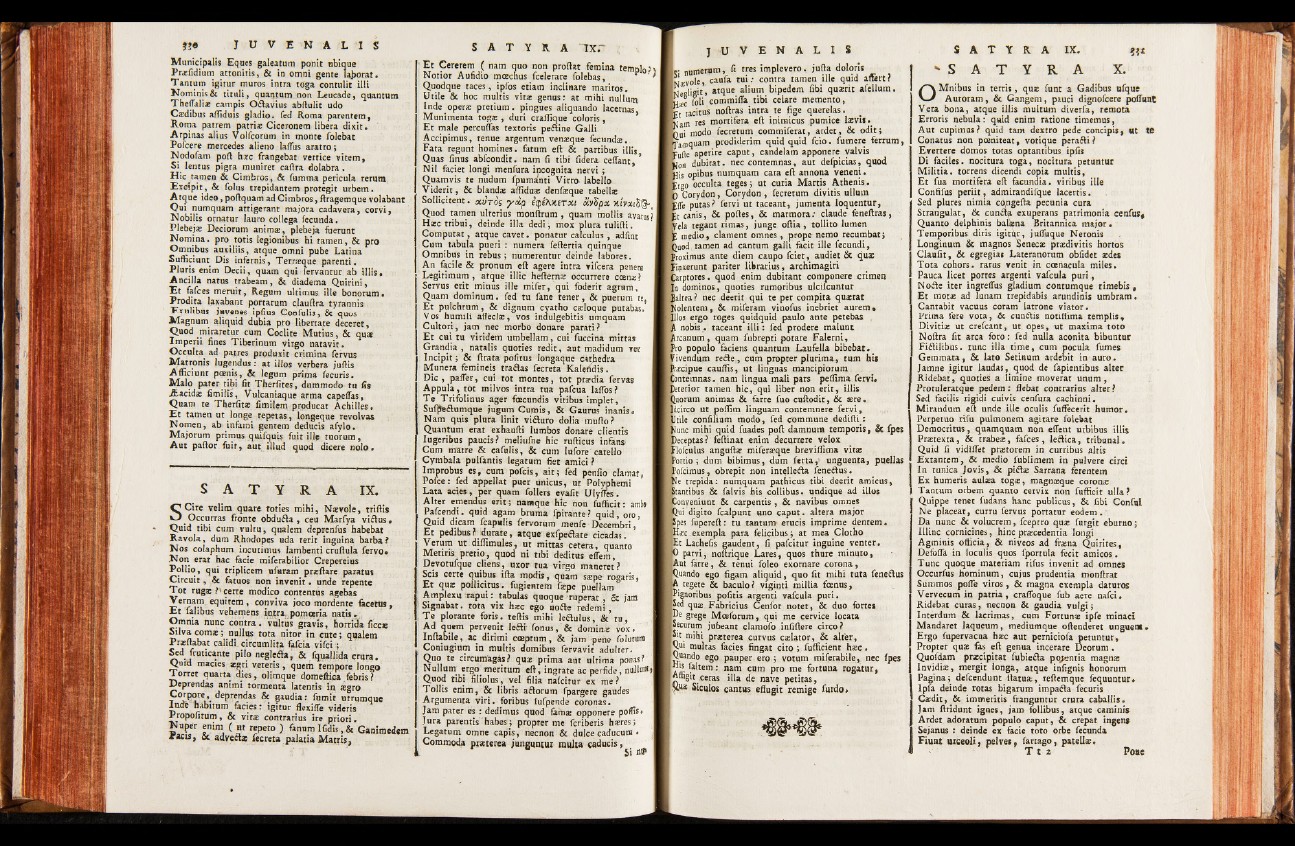 330 JUVENALIS
Municipalis Eques galeatum ponit ubique
Præsidium attonitis, & in omni gente laborat.
Tantum igitur muros intra toga contulit illi
Nominis & tituli, quantum non Leucade, quantum
Thessaliæ campis Octavius abstulit udo
Cædibus assiduis gladio. sed Roma parentem,
Roma patrem patriæ Ciceronem libera dixit.
Arpinas alius Volscorum in monte solebat
Poscere mercedes alieno lassus aratro;
Nodosam post hæc frangebat vertice vitem,
Si lentus pigra muniret castra dolabra.
Hic tamen & Cimbros, & summa pericula rerum
Excipit, & solus trepidantem protegit urbem.
Atque ideo, postquam ad Cimbros, stragemque volabant
Qui numquam attigerant majora cadavera, corvi,
Nobilis ornatur lauro collega secunda.
Plebejæ Deciorum animæ, plebeja fuerunt
Nomina. pro totis legionibus hi tamen, & pro
Omnibus auxiliis, atque omni pube Latina
Sufficiunt Dis infernis, Terræque parenti.
Pluris enim Decii, quam qui servantur ab illis.
Ancilla natus trabeam, & diadema Quirini,
Et fasces meruit, Regum ultimus ille bonorum.
Prodita laxabant portarum claustra tyrannis
Exulibus juvenes ipsius Consulis, & quos
Magnum aliquid dubia pro libertate deceret,
Quod miraretur cum Coclite Mutius, & quæ
Imperii fines Tiberinum virgo natavit.
Occulta ad patres produxit crimina servus
Matronis lugendus: at illos verbera justis
Afficiunt pœnis, & legum prima securis.
Malo pater tibi sit Thersites, dummodo tu sis
Æacidæ similis, Vulcaniaque arma capessas,
Quam te Thersitæ similem producat Achilles.
Et tamen ut longe repetas, longeque revolvas
Nomen, ab infami gentem deducis asylo.
Majorum primus quisquis fuit ille tuorum,
Aut pastor fuit, aut illud quod dicere nolo.
SATYRA IX.
SCire velim quare toties mihi, Nævole, tristis
Occurras fronte obducta, ceu Marsya victus.
Quid tibi cum vultu, qualem deprensus habebat
Ravola, dum Rhodopes uda terit inguina barba?
Nos colaphum incutimus lambenti crustula servo.
Non erat hac facie miserabilior Crepereius
Pollio, qui triplicem usuram præstare paratus
Circuit, & fatuos non invenit. unde repente
Tot rugæ? certe modico contentus agebas
Vernam equitem, conviva joco mordente facetus,
Et salibus vehemens intra pomœria natis.
Omnia nunc contra. vultus gravis, horrida siccæ
Silva comæ; nullus tota nitor in cute; qualem
Præstabat calidi circumlita fascia visci;
Sed fruticante pilo neglecta, & squallida crura.
Quid macies ægri veteris, quem tempore longo
Torret quarta dies, olimque domestica febris?
Deprendas animi tormenta latentis in ægro
Corpore, deprendas & gaudia: sumit utrumque
Inde habitum facies: igitur flexisse videris
Propositum, & vitæ contrarius ire priori.
Nuper enim ( ut repeto ) fanum Isidis, & Ganimedem
Pacis, & advectæ secreta palatia Matris,
SATYRA IX.
Et Cererem ( nam quo non prostat femina templo? )
Notior Aufidio mœchus scelerare solebas,
Quodque taces, ipsos etiam inclinare maritos.
Utile & hoc multis vitæ genus: at mihi nullum
Inde operæ pretium. pingues aliquando lacernas,
Munimenta togæ, duri crassique coloris,
Et male percussas textoris pectine Galli
Accipimus, tenue argentum venæque secundæ.
Fata regunt homines. fatum est & partibus illis,
Quas sinus abscondit. nam si tibi sidera cessant,
Nil faciet longi mensura incognita nervi;
Quamvis te nudum spumanti Virro labello
Viderit, & blandæ assiduæ densæque tabellæ
Sollicitent. αὐτὸς γὰρ ἐφέλκεται ἄνδρα κίναιδος.
Quod tamen ulterius monstrum, quam mollis avarus?
Hæc tribui, deinde illa dedi, mox plura tulisti.
Computat, atque cavet. ponatur calculus, adsint
Cum tabula pueri: numera sestertia quinque
Omnibus in rebus; numerentur deinde labores.
An facile & pronum est agere intra viscera penem
Legitimum, atque illic hesternæ occurrere cœnæ?
Servus erit minus ille miser, qui foderit agrum,
Quam dominum. sed tu sane tener, & puerum te,
Et pulchrum, & dignum cyatho cæloque putabas.
Vos humili asseclæ, vos indulgebitis umquam
Cultori, jam nec morbo donare parati?
Et cui tu viridem umbellam, cui succina mittas
Grandia, natalis quoties redit, aut madidum ver
Incipit; & strata positus longaque cathedra
Munera femineis tractas secreta Kalendis.
Dic, passer, cui tot montes, tot prædia servas
Appula, tot milvos intra tua pascua lassos?
Te Trifolinus ager fœcundis vitibus implet,
Suspectumque jugum Cumis, & Gaurus inanis.
Nam quis plura linit victuro dolia musto?
Quantum erat exhausti lumbos donare clientis
Iugeribus paucis? meliusne hic rusticus infans
Cum matre & casulis, & cum lusore catello
Cymbala pulsantis legatum fiet amici?
Improbus es, cum poscis, ait; sed pensio clamat,
Posce: sed appellat puer unicus, ut Polyphemi
Lata acies, per quam sollers evasit Ulysses.
Alter emendus erit; namque hic non sufficit: ambo
Pascendi. quid agam bruma spirante? quid, oro,
Quid dicam scapulis servorum mense Decembri,
Et pedibus? durate, atque exspectate cicadas.
Verum ut dissimules, ut mittas cetera, quanto
Metiris pretio, quod ni tibi deditus essem,
Devotusque cliens, uxor tua virgo maneret?
Scis certe quibus ista modis, quam sæpe rogaris,
Et quæ pollicitus. fugientem sæpe puellam
Amplexu rapui: tabulas quoque ruperat, & jam
Signabat. tota vix hæc ego nocte redemi,
Te plorante foris. testis mihi lectulus, & tu,
Ad quem pervenit lecti sonus, & dominæ vox.
Instabile, ac dirimi cœptum, & jam pene solutum
Coniugium in multis domibus servavit adulter.
Quo te circumagas? quæ prima aut ultima ponas?
Nullum ergo meritum est, ingrate ac perfide, nullum,
Quod tibi filiolus, vel filia nascitur ex me?
Tollis enim, & libris actorum spargere gaudes
Argumenta viri. foribus suspende coronas.
Jam pater es: dedimus quod famæ opponere possis.
Jura parentis habes; propter me scriberis hæres;
Legatum omne capis, necnon & dulce caducum.
Commoda præterea junguntur multa caducis,
Si nu-
JUVENALIS
Si numerum, si tres implevero. justa doloris
Nævole, causa tui: contra tamen ille quid affert?
Negligit, atque alium bipedem sibi quærit asellum.
Hæc soli commissa tibi celare memento,
Et tacitus nostras intra te fige querelas.
Nam res mortifera est inimicus pumice lævis.
Qui modo secretum commiserat, ardet, & odit;
Tamquam prodiderim quid quid scio. sumere ferrum,
Fuste aperire caput, candelam apponere valvis
Non dubitat. nec contemnas, aut despicias, quod
His opibus numquam cara est annona veneni.
Ergo occulta teges; ut curia Martis Athenis.
O Corydon, Corydon, secretum divitis ullum
Esse putas? servi ut taceant, jumenta loquentur,
Et canis, & postes, & marmora: claude fenestras,
Vela tegant rimas, junge ostia, tollito lumen
E medio, clament omnes, prope nemo recumbat;
Quod tamen ad cantum galli facit ille secundi,
Proximus ante diem caupo sciet, audiet & quæ
Finxerunt pariter librarius, archimagiri
Carptores. quod enim dubitant componere crimen
In dominos, quoties rumoribus ulciscuntur
Baltea? nec deerit qui te per compita quærat
Nolentem, & miseram vinosus inebriet aurem.
Illos ergo roges quidquid paulo ante petebas
A nobis. taceant illi: sed prodere malunt
Arcanum, quam subrepti potare Falerni,
Pro populo faciens quantum Laufella bibebat.
Vivendum recte, cum propter plurima, tum his
Præcipue caussis, ut linguas mancipiorum
Contemnas. nam lingua mali pars pessima servi.
Deterior tamen hic, qui liber non erit, illis
Quorum animas & farre suo custodit, & ære.
Idcirco ut possim linguam contemnere servi,
Utile consilium modo, sed commune dedisti:
Nunc mihi quid suades post damnum temporis, & spes
Deceptas? festinat enim decurrere velox
Flosculus angustæ miseræque brevissima vitæ
Portio; dum bibimus, dum serta, unguenta, puellas
Poscimus, obrepit non intellecta senectus.
Ne trepida: numquam pathicus tibi deerit amicus,
Stantibus & salvis his collibus. undique ad illos
Conveniunt & carpentis, & navibus omnes
Qui digito scalpunt uno caput. altera major
Spes superest: tu tantum erucis imprime dentem.
Hæc exempla para felicibus; at mea Clotho
Et Lachesis gaudent, si pascitur inguine venter.
O parvi, nostrique Lares, quos thure minuto,
Aut farre, & tenui soleo exornare corona,
Quando ego figam aliquid, quo sit mihi tuta senectus
A tegete & baculo? viginti millia fœnus,
Pignoribus positis argenti vascula puri.
Sed quæ Fabricius Censor notet, & duo fortes
De grege Mœsorum, qui me cervice locata
Securum jubeant clamoso insistere circo?
Sit mihi præterea curvus cælator, & alter,
Qui multas facies fingat cito; sufficient hæc.
Quando ego pauper ero; votum miserabile, nec spes
His saltem: nam cum pro me fortuna rogatur,
Affigit ceras illa de nave petitas,
Quæ Siculos cantus effugit remige surdo.
SATYRA IX. 331
SATYRA X.
OMnibus in terris, quæ sunt a Gadibus usque
Auroram, & Gangem, pauci dignoscere possunt
Vera bona, atque illis multum diversa, remota
Erroris nebula: quid enim ratione timemus,
Aut cupimus? quid tam dextro pede concipis, ut te
Conatus non pœniteat, votique peracti?
Evertere domos totas optantibus ipsis
Di faciles. nocitura toga, nocitura petuntur
Militia. torrens dicendi copia multis,
Et sua mortifera est facundia. viribus ille
Confisus periit, admirandisque lacertis.
Sed plures nimia congesta pecunia cura
Strangulat, & cuncta exuperans patrimonia census,
Quanto delphinis balæna Britannica major.
Temporibus diris igitur, jussuque Neronis
Longinum & magnos Senecæ prædivitis hortos
Clausit, & egregias Lateranorum obsidet ædes
Tota cohors. rarus venit in cœnacula miles.
Pauca licet portes argenti vascula puri,
Nocte iter ingressus gladium contumque timebis,
Et motæ ad lunam trepidabis arundinis umbram.
Cantabit vacuus coram latrone viator.
Prima fere vota, & cunctis notissima templis,
Divitiæ ut crescant, ut opes, ut maxima toto
Nostra sit arca foro: sed nulla aconita bibuntur
Fictilibus. tunc illa time, cum pocula sumes
Gemmata, & lato Setinum ardebit in auro.
Jamne igitur laudas, quod de sapientibus alter
Ridebat, quoties a limine moverat unum,
Protuleratque pedem: flebat contrarius alter?
Sed facilis rigidi cuivis censura cachinni.
Mirandum est unde ille oculis suffecerit humor.
Perpetuo risu pulmonem agitare solebat
Democritus, quamquam non essent urbibus illis
Prætexta, & trabeæ, fasces, lectica, tribunal.
Quid si vidisset prætorem in curribus altis
Extantem, & medio sublimem in pulvere circi
In tunica Jovis, & pictæ Sarrana ferentem
Ex humeris aulæa togæ, magnæque coronæ
Tantum orbem quanto cervix non sufficit ulla?
Quippe tenet sudans hanc publicus, & sibi Consul
Ne placeat, curru servus portatur eodem.
Da nunc & volucrem, sceptro quæ surgit eburno;
Illinc cornicines, hinc præcedentia longi
Agminis officia, & niveos ad fræna Quirites,
Defossa in loculis quos sportula fecit amicos.
Tunc quoque materiam risus invenit ad omnes
Occursus hominum, cujus prudentia monstrat
Summos posse viros, & magna exempla daturos
Vervecum in patria, crassoque sub aere nasci.
Ridebat curas, necnon & gaudia vulgi;
Interdum & lacrimas, cum Fortunæ ipse minaci
Mandaret laqueum, mediumque ostenderet unguem.
Ergo supervacua hæc aut perniciosa petuntur,
Propter quæ fas est genua incerare Deorum.
Quosdam præcipitat subiecta potentia magnæ
Invidiæ, mergit longa, atque insignis honorum
Pagina; descendunt statuæ, restemque sequuntur.
Ipsa deinde rotas bigarum impacta securis
Cædit, & immeritis franguntur crura caballis.
Jam stridunt ignes, jam follibus, atque caminis
Ardet adoratum populo caput, & crepat ingens
Sejanus: deinde ex facie toto orbe secunda
Fiunt urceoli, pelves, sartago, patellæ.
Tt 2 Pone